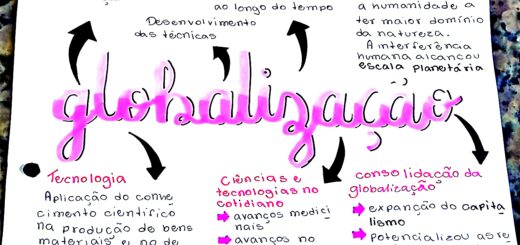 ao longo do tempo
Desenvolvimento
das técnicas
a humanidade a
ter maior domínio
da natureza.
A interferência
humana alcançou
escala planetária
globalização
Tecnologia
Aplicação do conhe
cimento científico
na produção de bens
materiais e no de
Ciências e
tecnologias no
cotidiano
avanços medici
nais
avanços no
consolidação da
globalização
expansão do capita
lismo
potencializou as re